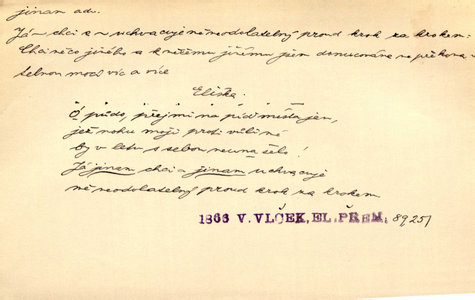 jinam adv.
Já – chci a – uchvacuje mě neodolatelný proud krok za krokem:
Chci něco jiného a k něčemu jinému jsem donucována nepřekona-
telnou mocí víc a více
Eliška.
Ó půdo, přejmi na půdí místa jen,
jež nohu moji proti vůli mé
by v letu s sebou neunášelo!
Já jinam chci a jinam uchvacuje
mě neodolatelný proud krok za krokem
1866 V. VLČEK, EL. PŘEM. 89, 25)